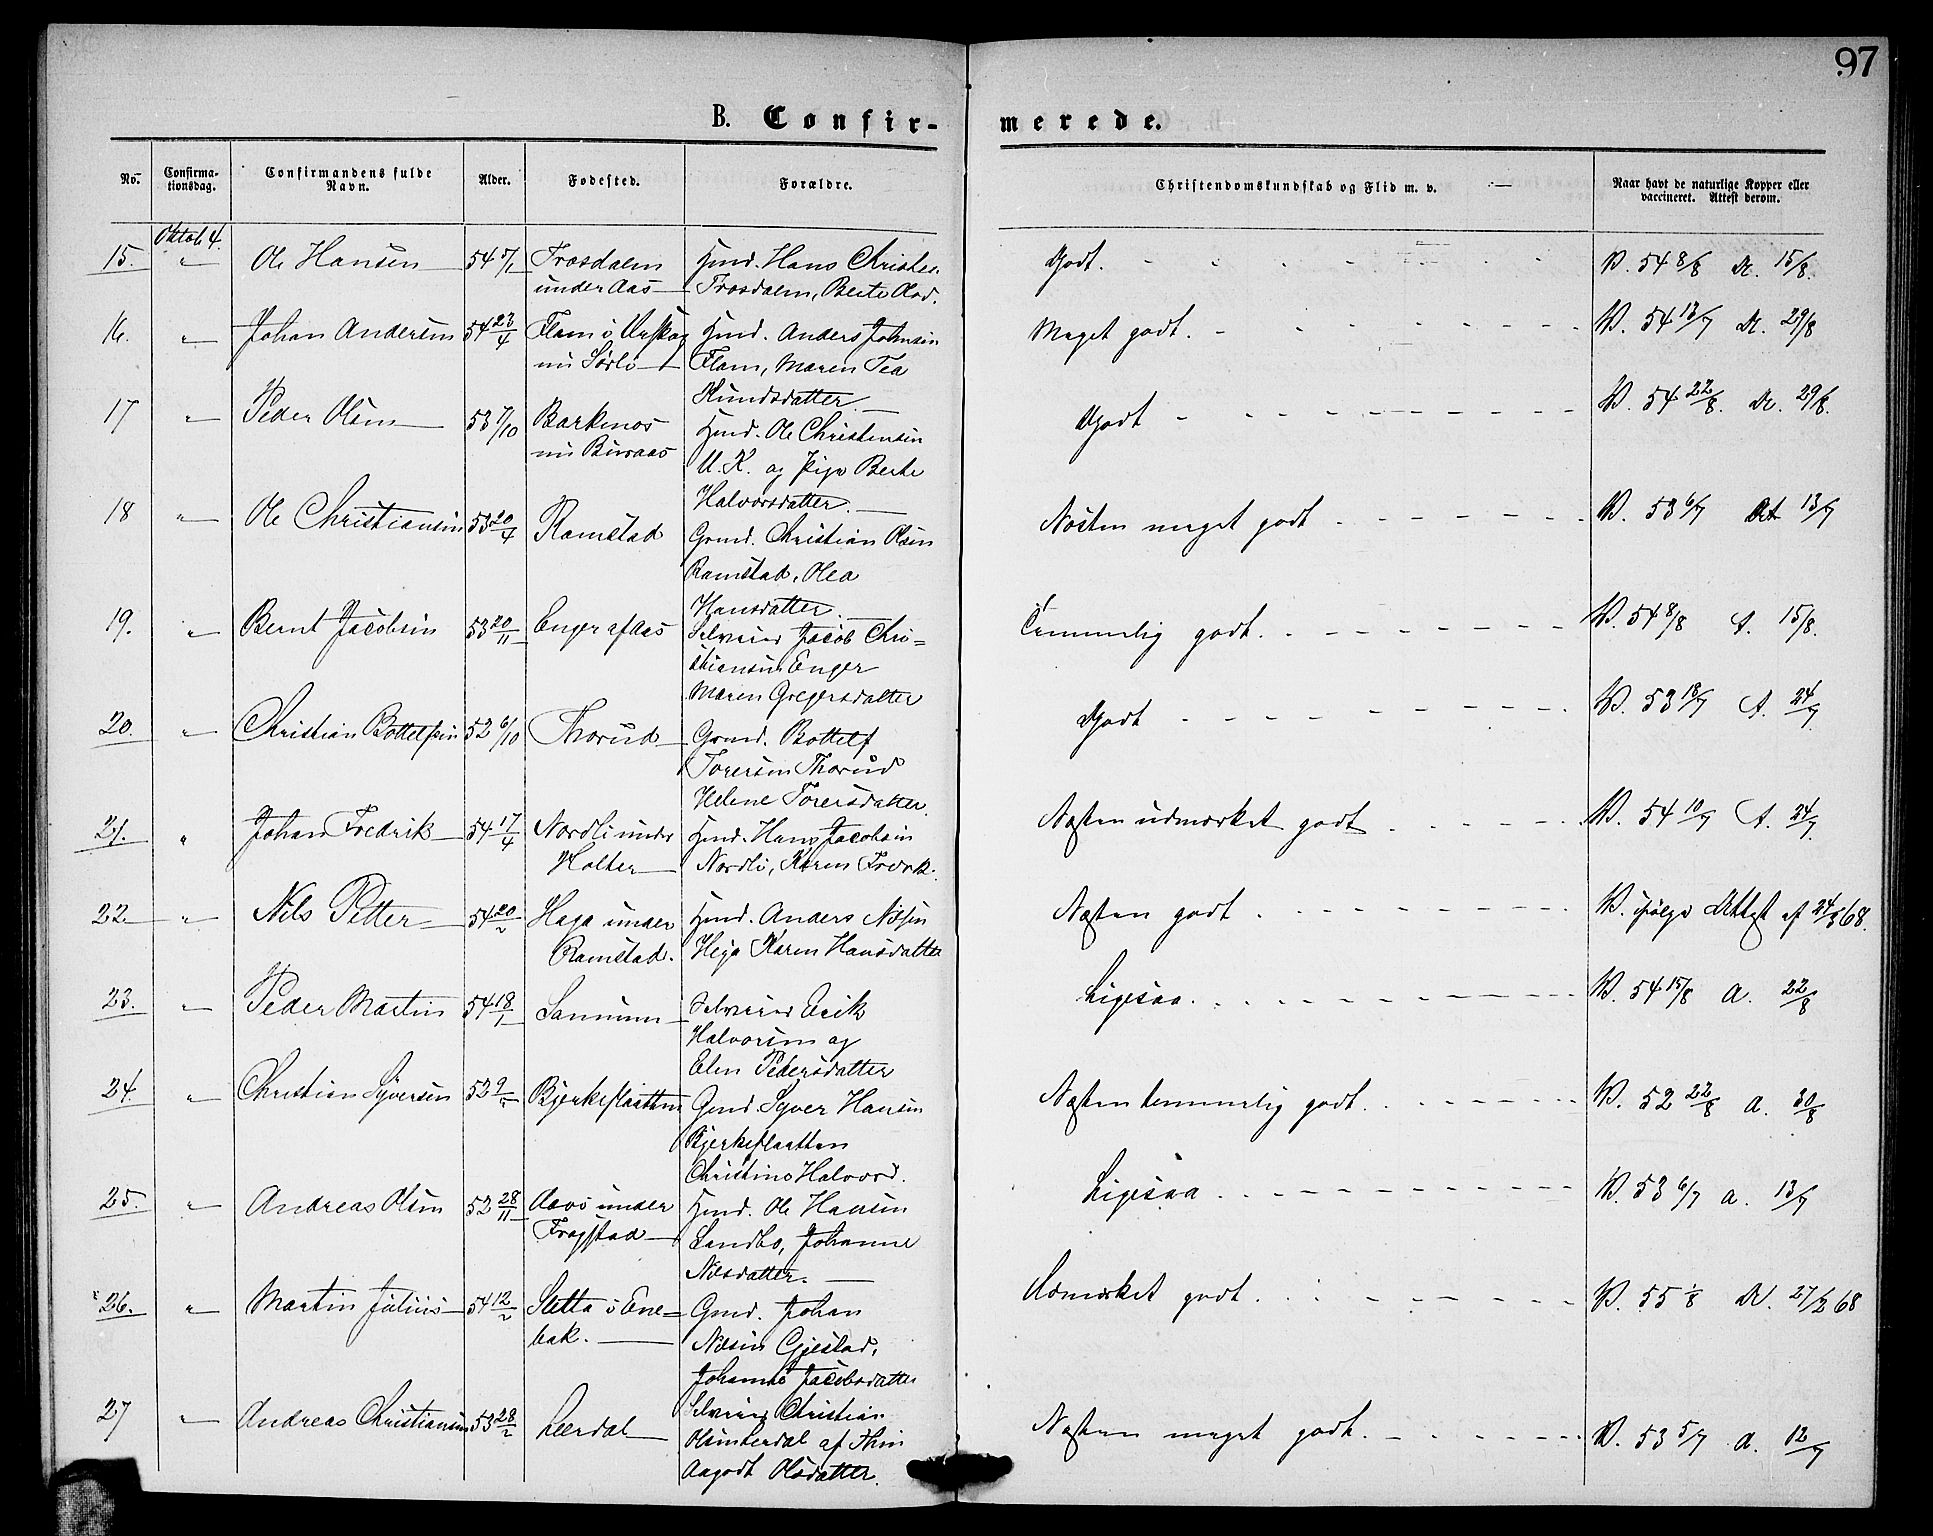 97
B. Confir-merede.
No. Confirma-tionsdag. Confirmandens fulde Navn. Alder. Fødested. Forældre. Christendomskundskab og Flid m. v. Naar havt de naturlige Kopper eller vaccineret. Attest derom.
Oktob 4.
15. " Ole Hansen 54 5/1 Frosdalen Hmd. Hans Christen. Godt. V. 54 8/8 At. 15/8.
under Aas Frosdalen, Berte Olsd.
16. " Johan Andersen 54 23/4 Flam i Urskog Hmd. Anders Johnsen Meget godt. V. 54 13/7 At. 29/8
nu Sørli Flam, Maren Tea
Knudsdatter.
17 " Peder Olsen 53 7/10 Barkenos Hmd. Ole Christensen Godt V. 54 22/8. At. 29/8.
nu Buraas U. K. og Pige Berte
Halvorsdatter.
18 " Ole Christiansen 53 20/4 Ramstad Gmd. Christian Olsen Næsten meget godt V. 53 6/7 Att 13/7
Ramstad, Olea
Hansdatter.
19. " Bernt Jacobsen 53 20/11 Enger af Aas Selveier Jacob Chri= Temmelig godt. V. 54 8/8 A. 15/8.
stiansen Enger
Maren Gregersdatter
20. " Christian Bottelfsen 52 6/10 Thorud Gmd. Bottelf Godt V. 53 18/7 A. 24/7.
Torersen Thorud
Helene Torersdatter.
21. " Johan Fredrik 54 17/4 Nordli under Hmd. Hans Jacobsen Næsten udmærket godt V. 54 10/7 A. 24/7.
Holter Nordli, Karen Fredrik.
22. " Nils Petter 54 20/2 Haga under Hmd. Anders Nilsen Næsten godt V. ifølge Attest af 24/8 68.
Ramstad. Heja Karen Hansdatter
23. " Peder Martin 54 18/1 Sannum Selveier Erik Ligesaa. V. 54 15/8 A. 22/8
Halvorsen og
Elen Pedersdatter
24. " Christian Syversen 52 9/5 Bjerkeflaatten Gmd. Syver Hansen Næsten temmelig godt. V. 52 22/8 A. 30/8
Bjerkeflaatten
Christine Halvord.
25. " Andreas Olsen 52 28/11 Aaros under Hmd. Ole Hansen Ligesaa V. 53 6/7 A. 13/7
Frogstad Sandbo, Johanne
Nilsdatter.
26. " Martin Julius 54 12/2 Sletta i Ene= Gmd. Johan Udmærket godt. V. 55 1/8 At. 27/2 68
bak. Nilsen Gjestad,
Johanne Jacobsdatter
27 " Andreas Christiansen 53 28/2 Leerdal Selveier Christian Næsten meget godt. V. 53 5/7 A. 12/7
Olsen Lerdal af Thin
Aagodt Olsdatter.